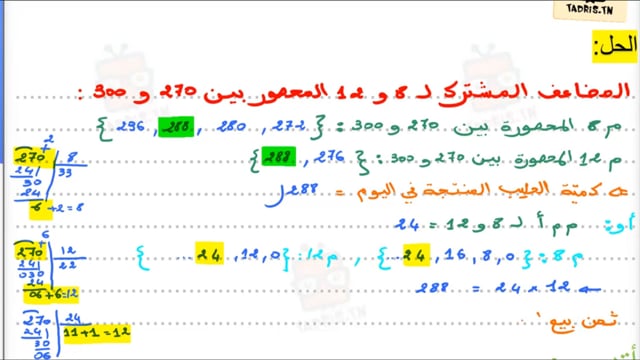 TADRIS.TN
الحل:
المضاعف المشترك لـ 8 و 12 المحصور بين 270 و 300 :
م 8 المحصورة بين 270 و 300 : {272 , 280 , 288 , 296}
م 12 المحصورة بين 270 و 300 : {276 , 288}
كميّة الحليب المنتجة في اليوم = 288 ل
أو: م م أ لـ 8 و 12 = 24
م 8 : {0 , 8 , 16 , 24 ...} , م 12 : {0 , 12 , 24 ...}
24 × 12 = 288
ثمن بيع
2
270 8
24 33
30
24
6 +2=8
6
270 12
24 22
030
24
06 +6=12
270 24
24 11+1=12
30
06